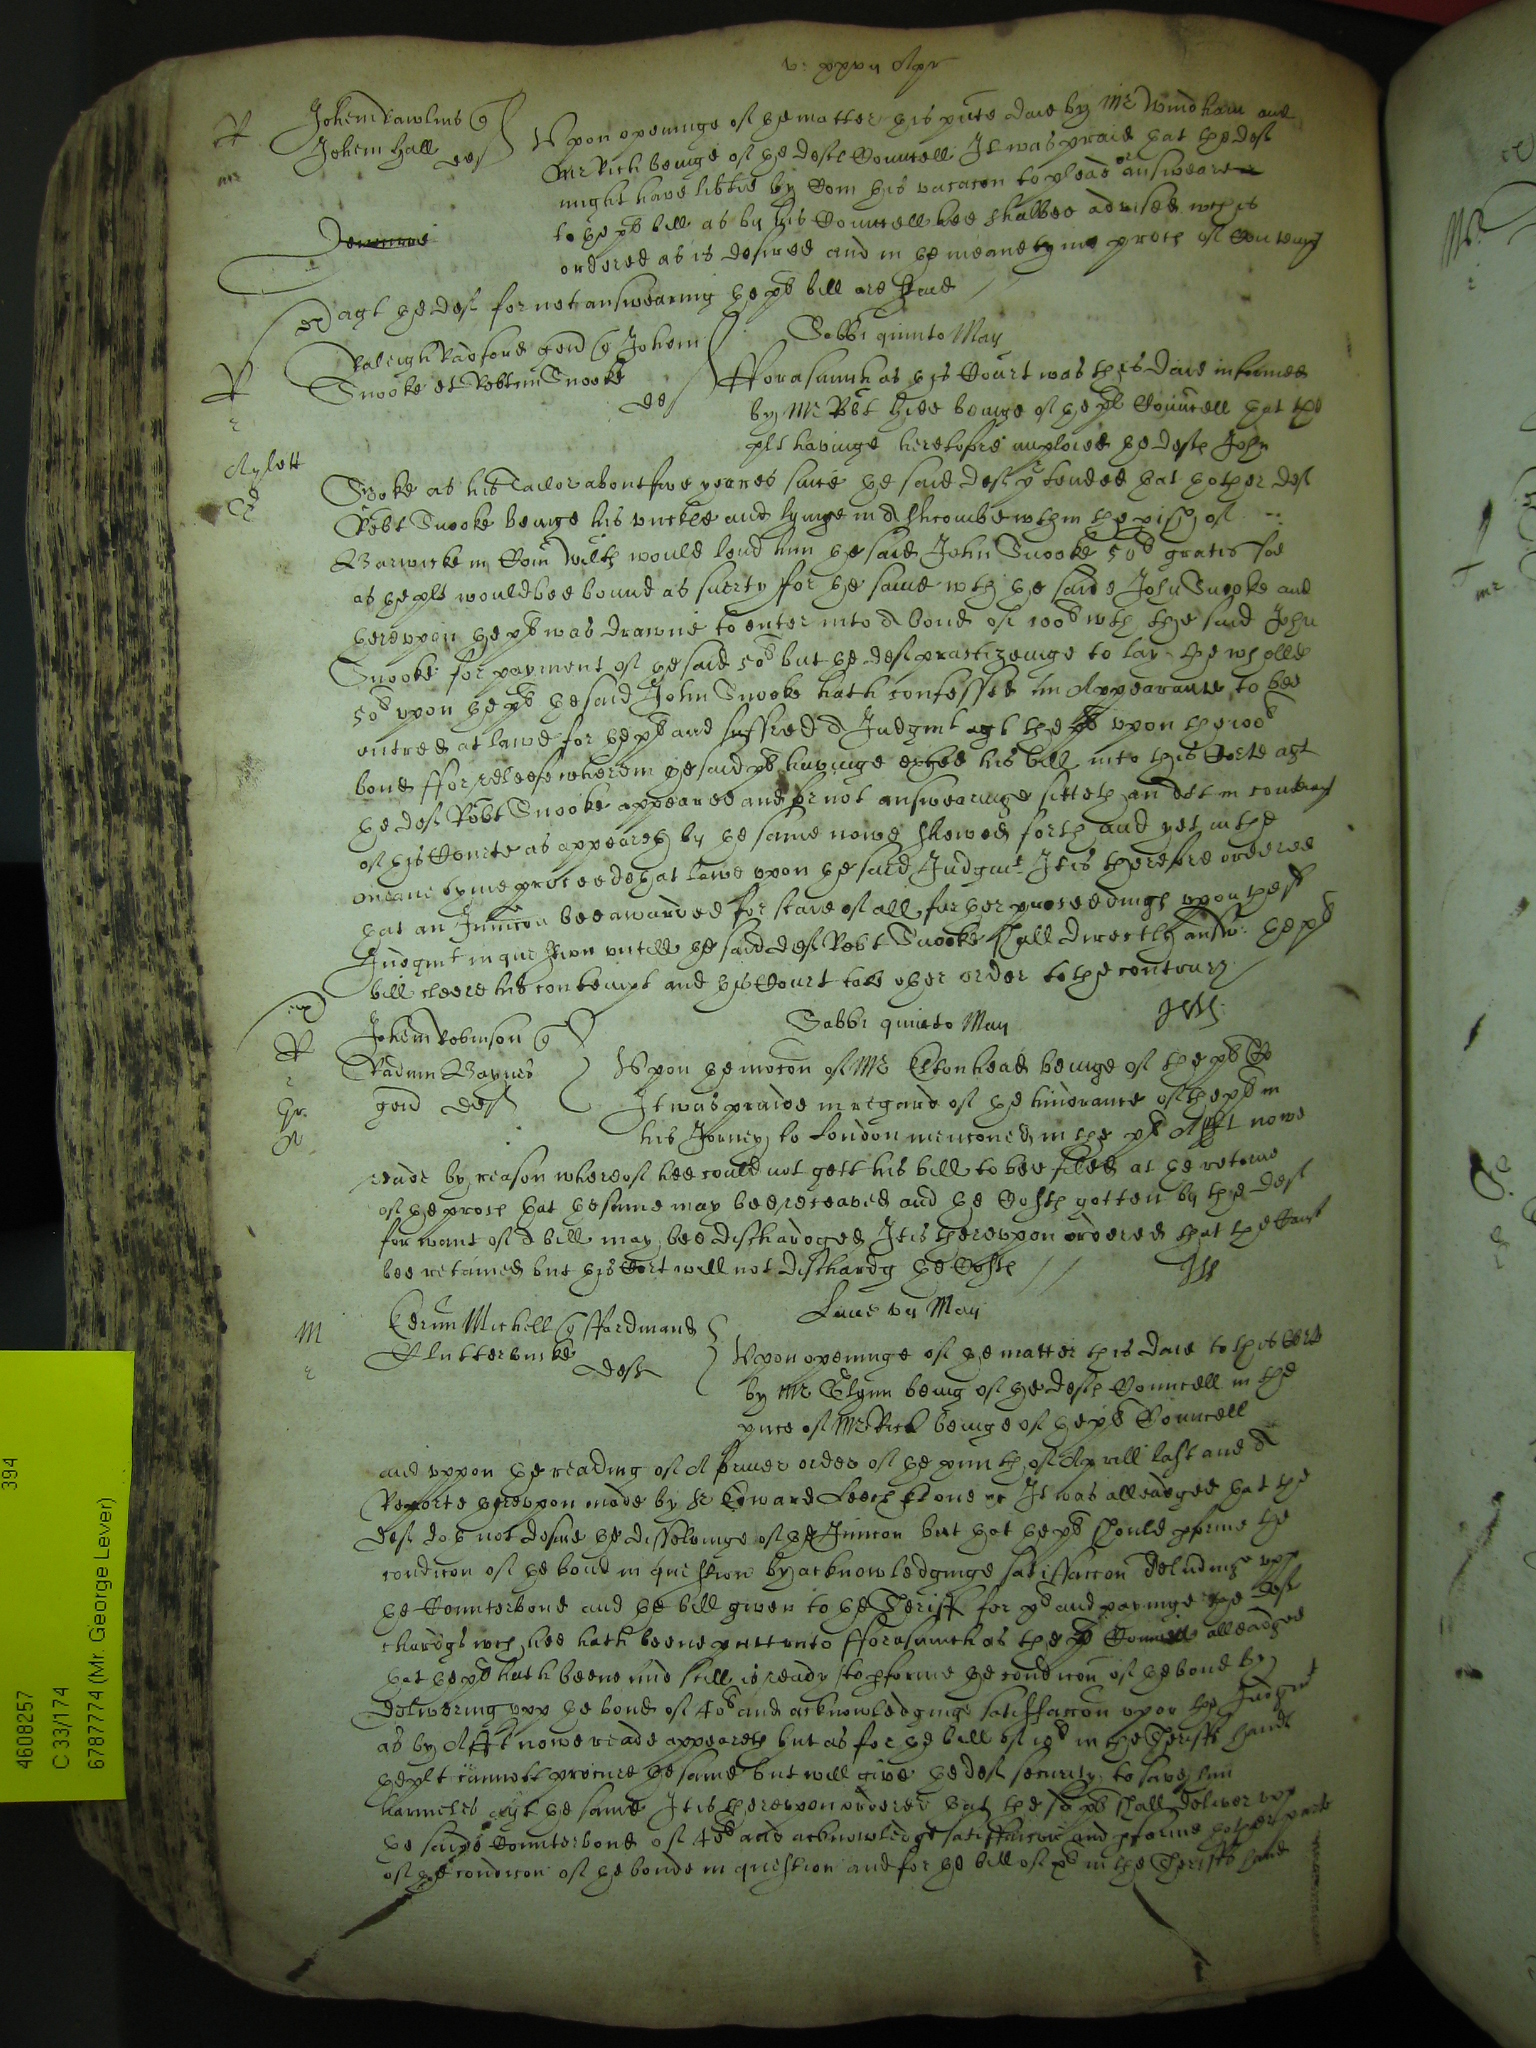 Johem Rawlins q
Johem Hall def
Upon openinge of the matter this pnte daie by Mr Windham and
Mr Rich beinge of the defts Councell It was praied that the deft
might have libtie by Com this vacacon to plead or answeare
to the pls bill as by his Councell hee shalbee advised wch is
ordered as is desired and in the meane tyme proces of Contempt
agt the deft for not answearing the pls bill are staid
Raleigh Radford gen q Johem
Snooke et Robtum Snooke def
Sabbi quinto May
Forasmuch as this Court was this daie informed
by Mr Hide beinge of the pls Councell that the
plt havinge heretofore imployed the deft John
Snooke as his Tailor about five yeares since the said deft ptended that thother deft
Robt Snooke beinge his unckle and lyvinge in within the pish of
Barwicke in Com Wilts would lend him the said John Snooke 50l gratis soe
as the plt would bee bound as suerty for the same wth the said John Snooke and
thereupon the pl was drawne to enter into a bond of 100l wth the said John
Snooke for payment of the said 50l but the deft practizeinge to lay the wholle
50l upon the pl the said John Snooke hath confessed an Appearance to bee
entred at lawe for the pl and suffred a Judgmt agt the pl upon the 100l
bond ffor releefe wherein the said pl havinge exhed his bill into this Corte agt
the deft Robt Snooke appeared and for not answearinge sitteth an Att in contempt
of this Courte as appeareth by the same nowe shewed forth and yet in the
meane tyme proceedeth at lawe upon the said Judgmt It is therefore ordered
that an Iniuncon bee awarded for staie of all further proceedings upon the
Judgmt in question untill the said deft Robt Snooke shall directly answ the pls
bill cleere his contempt and this Court take other order to the contrary
Johem Robinson q
Radum Baynes
gen def
Sabbi quinto May
Upon the mocon of Mr Eltonhead beinge of the pls Co
It was praied in regard of the hinderance of the pl in
his Jorney to London mencioned in the pls Afft nowe
read by reason whereof hee could not gett his bill to bee filed at the retorne
of the proces that the same may bee receaved and the Costs gotten by the deft
for want of a bill may bee dischardged It is thereupon ordered that the Cause
bee retained but this Cort will not dischardg the Costs
Michell q Ffardinand
Clutterbucke def
Lune vii May
Upon openinge of the matter this daie to this Corte
by Mr Glynn being of the defts Councell in the
pnce of Mr Rich beinge of the pls Councell
and uppon the reading of A former order of the of Aprill last and A
Reporte thereupon made by Sr Edward Leech Kt one &c It was alleadged that the
deft doe not desire the dissolvinge of the Iniuncon but that the pl should pforme the
condicon of the bond in question by acknowledginge satisfaccon delivering upp
the Counterbond and the bill given to the Sheriff for and payinge the deft
chardgs wch hee hath beene putt unto fforasmuch as the pls Councell alleadged
that the pl hath beene and still is ready to pforme the condicon of the bond by
delivering upp the bond of 40l and acknowledging satisfaccon upon the Judgmt
as by Afft nowe read appeareth but as for the bill of in the Sheriffs hands
the plt cannott procure the same but will give the deft security to save him
harmeles agt the same It is thereupon ordered that the sd pl shall deliver upp
the said Counterbond of 40l and acknowledge satisfaccon and pforme thother parte
of the condicon of the bonde in question and for the bill of in the Sheriffs hand
4608257 394
C 33/174
6787774 (Mr. George Lever)